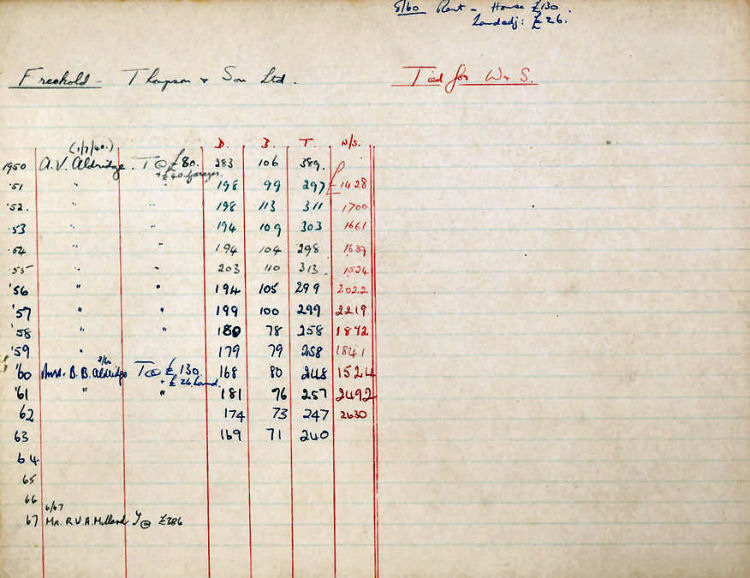 5/60 Rent - House £130.
Land adj: £26.
Freehold - Thompson & Son Ltd. Tied for W & S.
(1/7/40.) D. B. T. W/S.
1950 A.V. Aldridge. T @ £80. 283 106 389.
+ £40 garages.
'51 " 198 99 297 £1428
'52. " " 198 113 311 1700
'53 " " 194 109 303 1661
'54 " " 194 104 298 1639
'55 " " 203 110 313. 1524
'56 " " 194 105 299 2022
'57 " " 199 100 299 2219
'58 " " 180 78 258 1842
'59 " " 179 79 258 1841
'60 Mrs. B.B. Aldridge T @ £130. 168 80 248 1524
+ £26 Land.
'61 " " 181 76 257 2492
62 174 73 247 2630
63 169 71 240
64
65
66
6/67
67 Mr. R.V.A. T @ £286